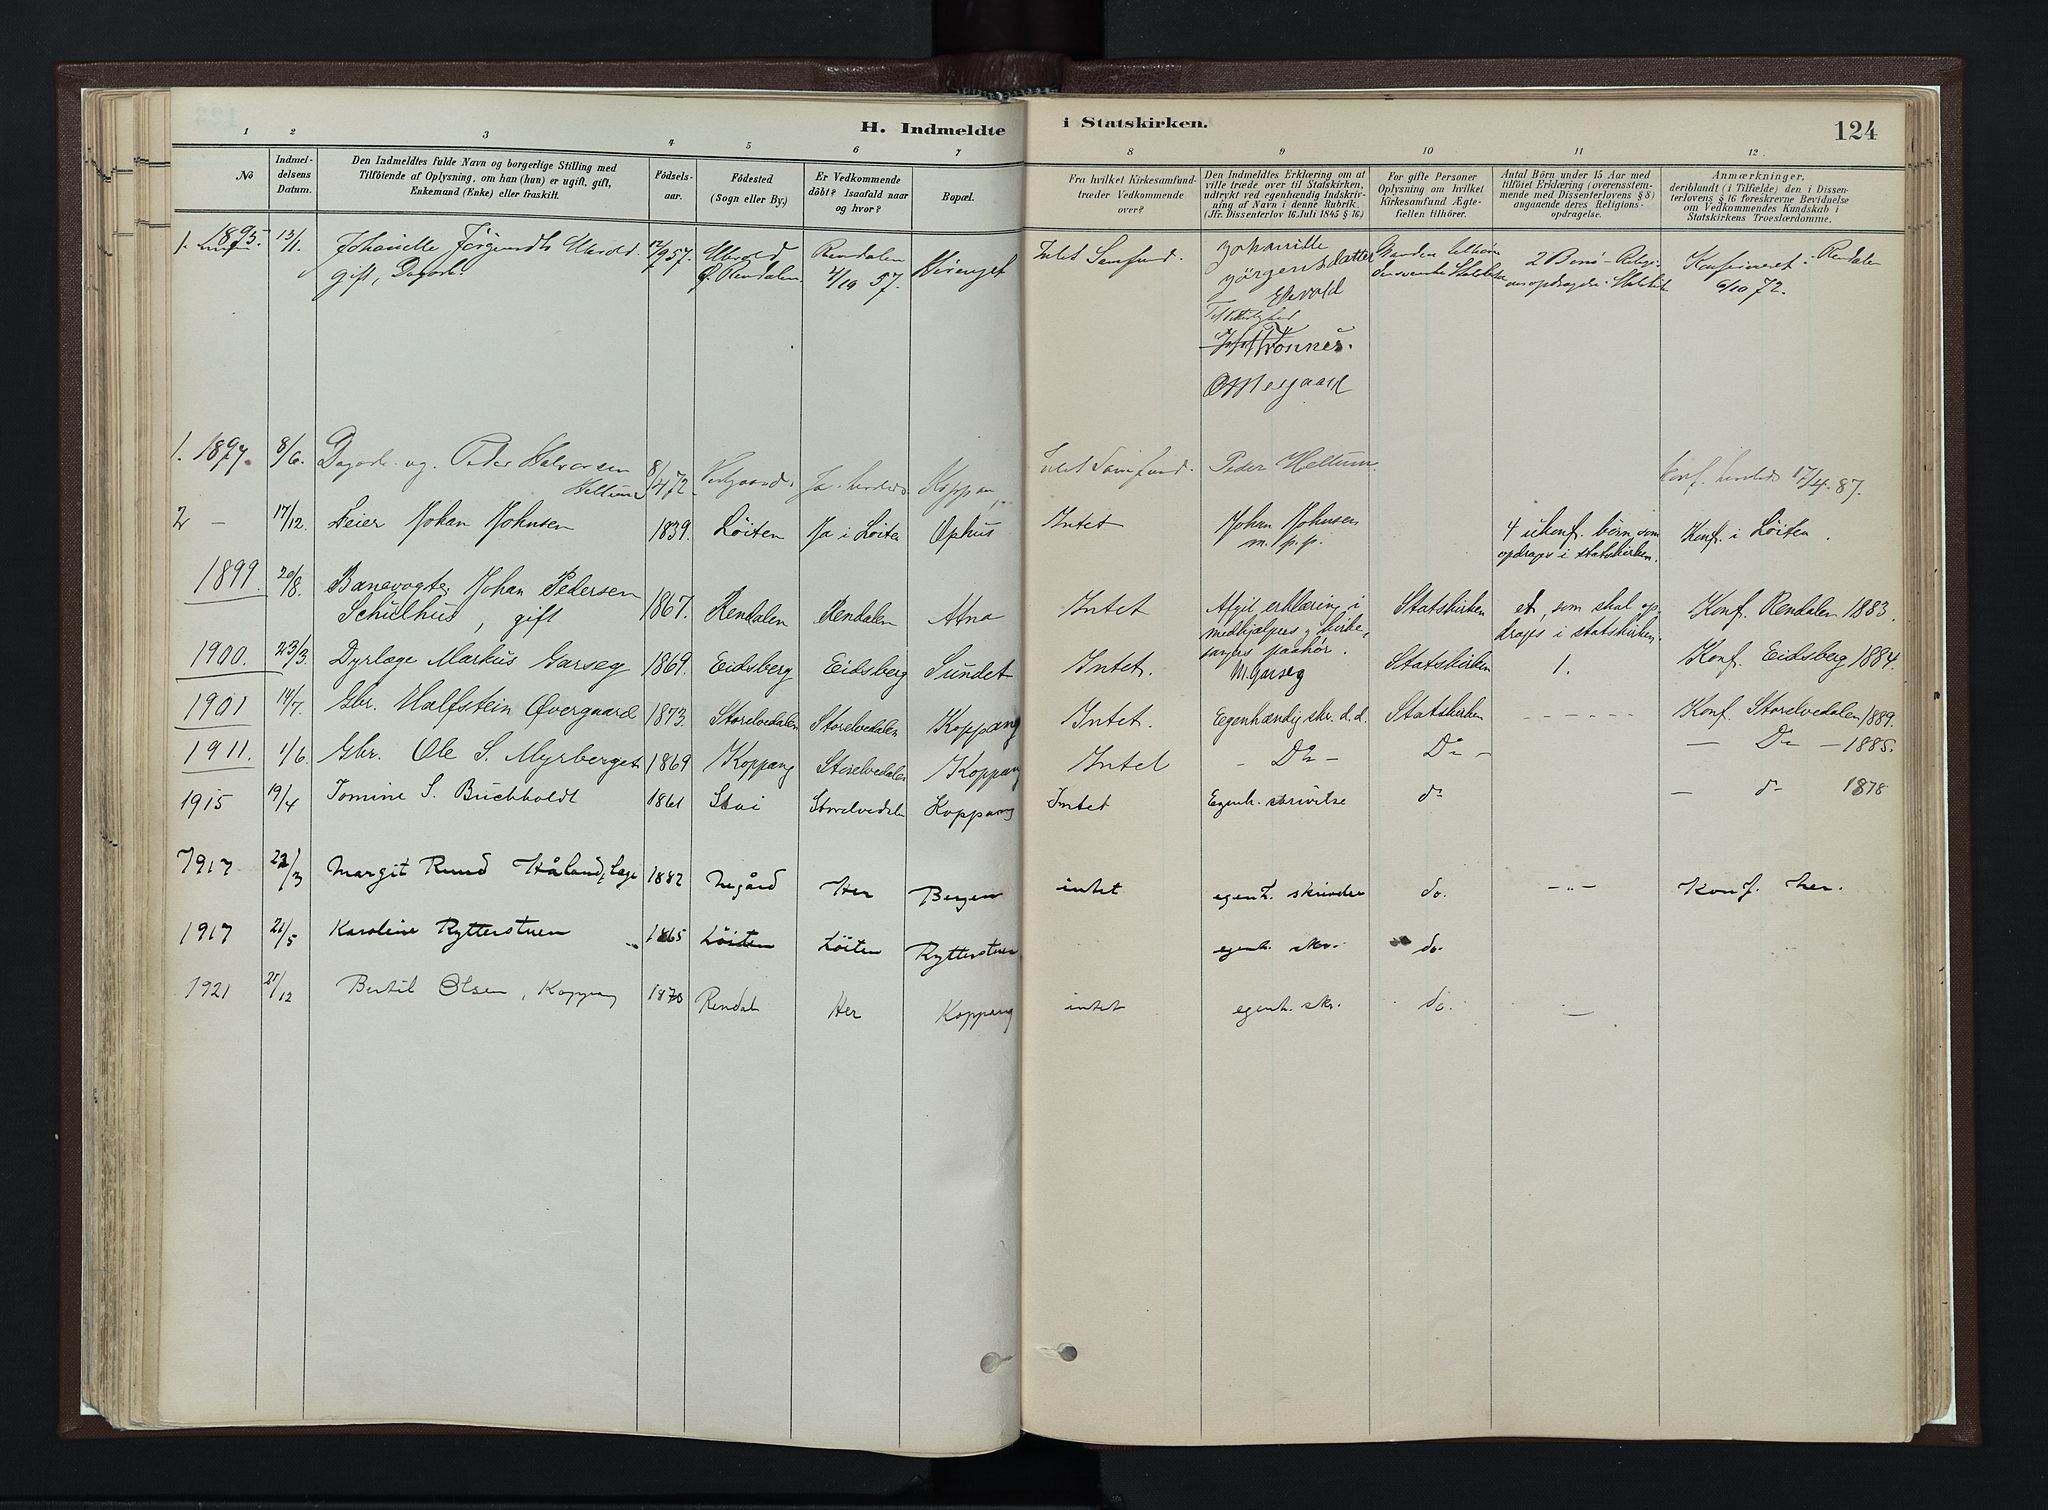 H. Indmeldte i Statskirken.
124
1 2 3 4 5 6 7 8 9 10 11 12.
No
Indmel-
delsens
Datum.
Den Indmeldtes fulde Navn og borgerlige Stilling med
Tilföiende af Oplysning, om han (hun) er ugift, gift,
Enkemand (Enke) eller fraskilt.
Födsels-
aar.
Födested
(Sogn eller By.)
Er Vedkommende
döbt? Isaafald naar
og hvor?
Bopæl.
Fra hvilket Kirkesamfund-
træder Vedkommende
over?
Den Indmeldtes Erklæring om at
ville træde over til Statskirken,
udtrykt ved egenhændig Indskriv-
ning af Navn i denne Rubrik.
(Jfr. Dissenterlov 16 Juli 1845 § 16)
For gifte Personer
Oplysning om hvilket
Kirkesamfund Ægte-
fællen tilhörer.
Antal Börn under 15 Aar med
tilföiet Erklæring (overensstem-
mende med Dissenterlovens § 8)
angaaende deres Religions-
opdragelse.
Anmærkninger,
deriblandt (i Tilfælde) den i Dissen-
terlovens § 16 foreskrevne Bevidnelse
om Vedkommendes Kundskab i
Statskirkens Troeslærdomme.
1. 1895. 13/1. 57. Rendalen Intet Samfund. 2 Konfirmeret i Rendalen
gift, Ø. Rendalen 4/10 57. 6/10 72.
Trønnes.
1. 1897. 8/6. Peder Halvorsen 8/4 72 Intet Samfund. Peder Hellum. Konf. 17/4 87.
Hellum
2 - 17/12. Feier Johan Johnsen 1839. Løiten Ja i Løiten Ophus Intet Johan Johnsen 4 ukonf. børn som Konf. i Løiten.
m. p. p. opdrages i statskirken.
1899. 20/8. Banevogter Johan Pedersen
Schulhus, gift 1867. Rendalen Rendalen Atna Intet Afgit erklæring i Statskirken et, som skal op- Konf. Rendalen 1883.
medhjælpers og kirke- drages i statskirken.
sangers paahør.
1900. 23/3. Dyrlæge Markus Garseg 1869. Eidsberg Eidsberg Sundet Intet. M. Garseg Statskirken 1. Konf. Eidsberg 1884.
1901 14/7. Gbr. Halfstein Øvergaard 1873. Storelvedalen Storelvedalen Koppang Intet. Egenhændig skr. d. d. Statskirken - - - - - - Konf. Storelvedalen 1889.
1911. 1/6. Gbr. Ole S. Myrberget 1869 Koppang Storelvedalen Koppang Intet - Do - Do - - Do - 1885.
1915 19/4 Tomine S. Buchholdt 1861 Stai Storelvedalen Koppang Intet Egenh. skrivelse do - do 1878
1917 22/3 Margit Ruud Håland, Læge 1882 Negård Her Bergen intet egenh. skrivelse do. -"- Konf. her.
1917 21/5 Karoline Rytterstuen 1865 Løiten Løiten Rytterstuen egenh. skr. do
1921 28/12 Bertil Olsen, Koppang 1870 Rendal Her Koppang intet egenh. skr. do. -